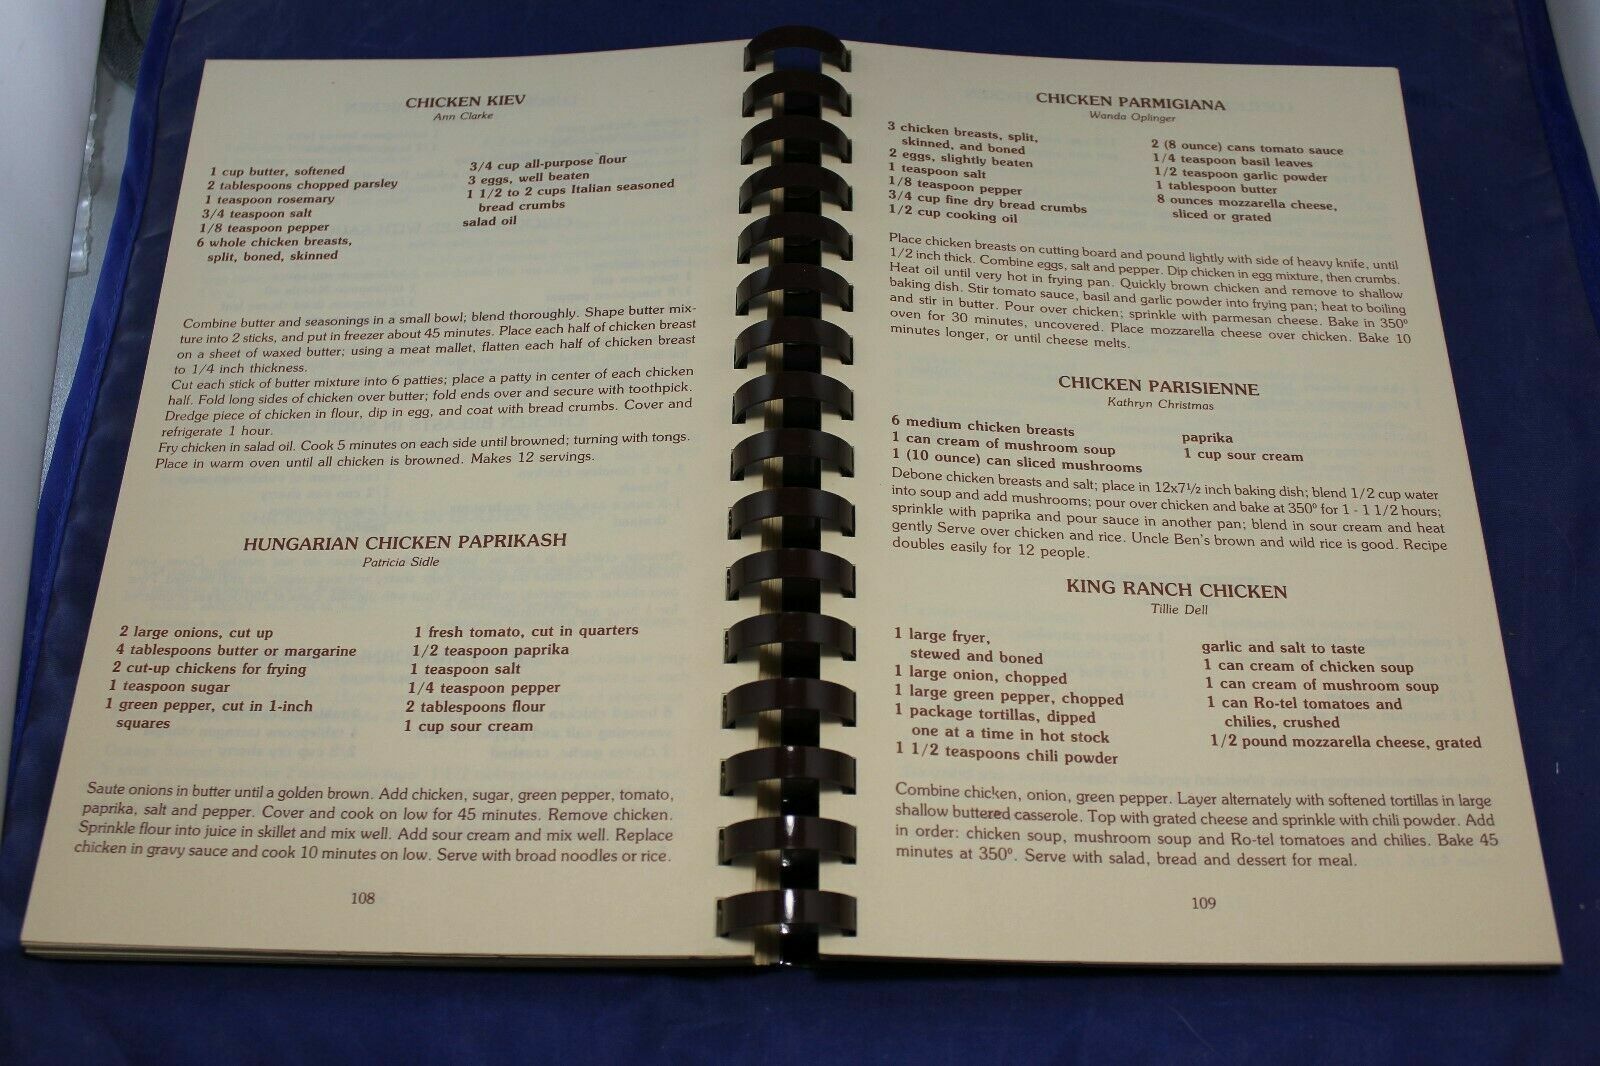 CHICKEN KIEV
Ann Clarke
1 cup butter, softened
2 tablespoons chopped parsley
1 teaspoon rosemary
3/4 teaspoon salt
1/8 teaspoon pepper
6 whole chicken breasts,
split, boned, skinned
3/4 cup all-purpose flour
3 eggs, well beaten
1 1/2 to 2 cups Italian seasoned
bread crumbs
salad oil
Combine butter and seasonings in a small bowl; blend thoroughly. Shape butter mix-
ture into 2 sticks, and put in freezer about 45 minutes. Place each half of chicken breast
on a sheet of waxed butter; using a meat mallet, flatten each half of chicken breast
to 1/4 inch thickness.
Cut each stick of butter mixture into 6 patties; place a patty in center of each chicken
half. Fold long sides of chicken over butter; fold ends over and secure with toothpick.
Dredge piece of chicken in flour, dip in egg, and coat with bread crumbs. Cover and
refrigerate 1 hour.
Fry chicken in salad oil. Cook 5 minutes on each side until browned; turning with tongs.
Place in warm oven until all chicken is browned. Makes 12 servings.
HUNGARIAN CHICKEN PAPRIKASH
Patricia Sidle
2 large onions, cut up
4 tablespoons butter or margarine
2 cut-up chickens for frying
1 teaspoon sugar
1 green pepper, cut in 1-inch
squares
1 fresh tomato, cut in quarters
1/2 teaspoon paprika
1 teaspoon salt
1/4 teaspoon pepper
2 tablespoons flour
1 cup sour cream
Saute onions in butter until a golden brown. Add chicken, sugar, green pepper, tomato,
paprika, salt and pepper. Cover and cook on low for 45 minutes. Remove chicken.
Sprinkle flour into juice in skillet and mix well. Add sour cream and mix well. Replace
chicken in gravy sauce and cook 10 minutes on low. Serve with broad noodles or rice.
108
CHICKEN PARMIGIANA
Wanda Oplinger
3 chicken breasts, split,
skinned, and boned
2 eggs, slightly beaten
1 teaspoon salt
1/8 teaspoon pepper
3/4 cup fine dry bread crumbs
1/2 cup cooking oil
2 (8 ounce) cans tomato sauce
1/4 teaspoon basil leaves
1/2 teaspoon garlic powder
1 tablespoon butter
8 ounces mozzarella cheese,
sliced or grated
Place chicken breasts on cutting board and pound lightly with side of heavy knife, until
1/2 inch thick. Combine eggs, salt and pepper. Dip chicken in egg mixture, then crumbs.
Heat oil until very hot in frying pan. Quickly brown chicken and remove to shallow
baking dish. Stir tomato sauce, basil and garlic powder into frying pan; heat to boiling
and stir in butter. Pour over chicken; sprinkle with parmesan cheese. Bake in 350º
oven for 30 minutes, uncovered. Place mozzarella cheese over chicken. Bake 10
minutes longer, or until cheese melts.
CHICKEN PARISIENNE
Kathryn Christmas
6 medium chicken breasts
1 can cream of mushroom soup
1 (10 ounce) can sliced mushrooms
paprika
1 cup sour cream
Debone chicken breasts and salt; place in 12x7½ inch baking dish; blend 1/2 cup water
into soup and add mushrooms; pour over chicken and bake at 350º for 1 - 1 1/2 hours;
sprinkle with paprika and pour sauce in another pan; blend in sour cream and heat
gently Serve over chicken and rice. Uncle Ben's brown and wild rice is good. Recipe
doubles easily for 12 people.
KING RANCH CHICKEN
Tillie Dell
1 large fryer,
stewed and boned
1 large onion, chopped
1 large green pepper, chopped
1 package tortillas, dipped
one at a time in hot stock
1 1/2 teaspoons chili powder
garlic and salt to taste
1 can cream of chicken soup
1 can cream of mushroom soup
1 can Ro-tel tomatoes and
chilies, crushed
1/2 pound mozzarella cheese, grated
Combine chicken, onion, green pepper. Layer alternately with softened tortillas in large
shallow buttered casserole. Top with grated cheese and sprinkle with chili powder. Add
in order: chicken soup, mushroom soup and Ro-tel tomatoes and chilies. Bake 45
minutes at 350º. Serve with salad, bread and dessert for meal.
109